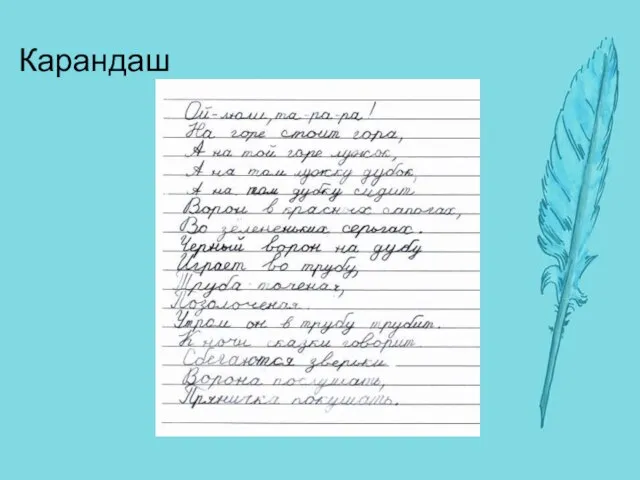 Карандаш
Ой-люли, та-ра-ра!
На горе стоит гора,
А на той горе лужок,
А на том лужку дубок,
А на том дубку сидит
Ворон в красных сапогах,
Во зелененьких серьгах.
Черный ворон на дубу
Играет во трубу,
Труба точеная,
Позолоченая.
Утром он в трубу трубит.
К ночи сказки говорит.
Сбегаются зверьки
Ворона послушать,
Пряничка покушать.